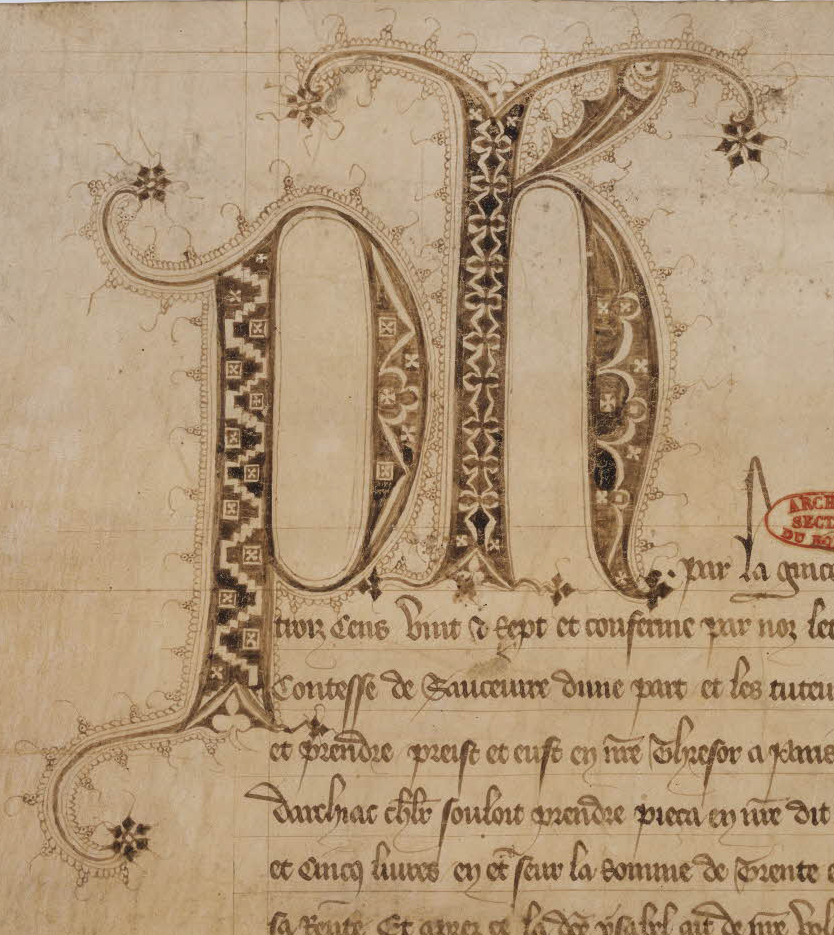 Ph
ARCH
SECT
DU RO
par la grace
trois Cens vint & sept et conferme par noz let
Contesse de Sancerre dune part et les tuteu
et prendre preist et eust en nre Thresor a paris
darchiac chlr souloit prendre pieca en nre dit
et Cincq livres en et seur la Somme de Trente
sa Rente Et aprez ce la dce ysabel ait de nre